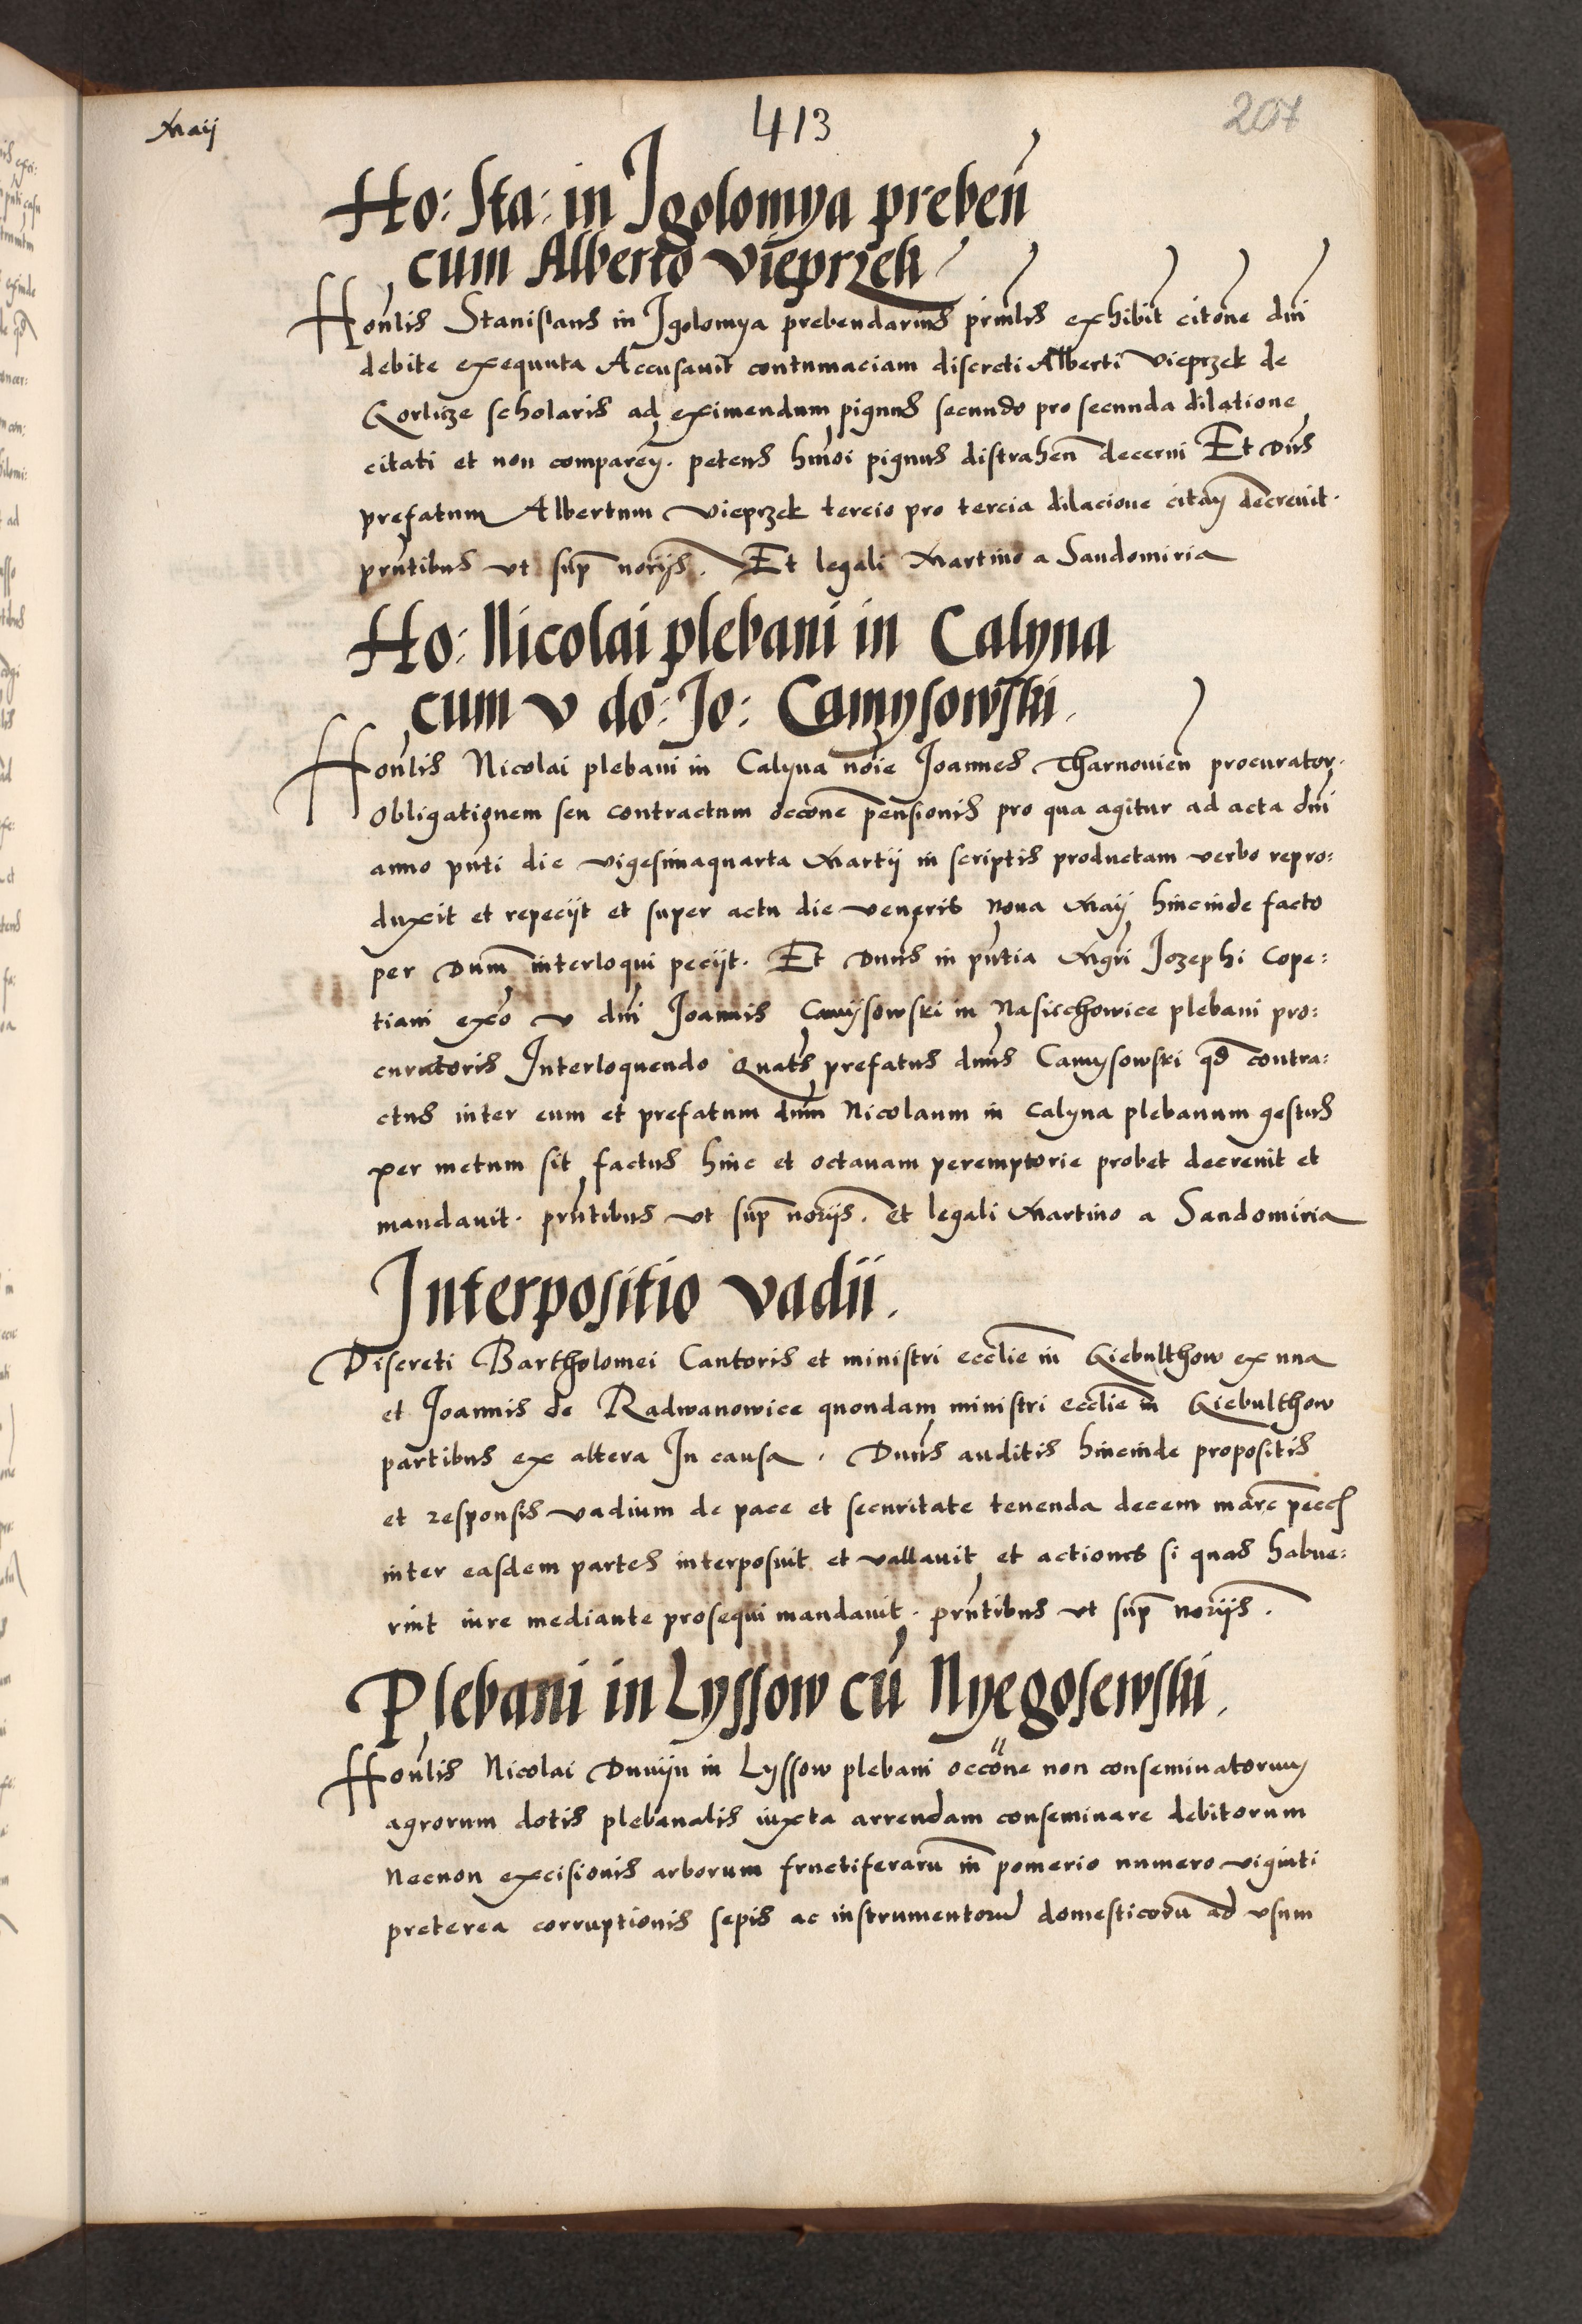 Maij
413
207
Ho: Sta: in Igolomya preben̄
cum Alberto Vieprzek
Hon̄lis Stanislaus in Igolomya prebendarius prin̄lis exhibit citōne dn̄i
debite exequuta Accusauit contumaciam discreti Alberti Vieprzek de
Gorlicze scholaris ad eximendum pignus secundo pro secunda dilatione
citati et non comparen̄. petens hm̄oi pignus distrahen̄ decerni Et Dn̄s
prefatum Albertum Vieprzek tercio pro tercia dilacione citan̄ decreuit.
pn̄tibus vt sup̄ norijs. Et legali Martino a Sandomiria
Ho: Nicolai plebani in Calyna
cum v do: Jo: Camysowski.
Hon̄lis Nicolai plebani in Calyna nōie Joannes Tharnouien̄ procurator.
Obligationem seu contractum occōne pensionis pro qua agitur ad acta dn̄i
anno pn̄ti die vigesimaquarta Martij in scriptis productam verbo repro:
duxit et repecijt et super actu die veneris nona Maij hincinde facto
per Dnūm interloqui pecijt. Et Dnūs in pn̄tia Mgr̄i Jozephi Cope:
tiani exo v dn̄i Joannis Camijsowski in Nasiechowice plebani pro:
curatoris Interloquendo Quats̄ prefatus dnūs Camysowski qd̄ contra:
ctus inter eum et prefatum dnūm Nicolaum in Calyna plebanum gestus
per metum sit factus hinc et octauam peremptorie probet decreuit et
mandauit. pn̄tibus vt sup̄ norijs. et legali Martino a Sandomiria
Interpositio vadii.
Discreti Bartholomei Cantoris et ministri ecclīe in Giebulthow ex una
et Joannis de Radwanowice quondam ministri ecclīe in Giebulthow
partibus ex altera In causa. Dnūs auditis hincinde propositis
et responsis vadium de pace et securitate tenenda decem marc̄ pecc̄
inter easdem partes interposuit et vallauit et actiones si quas habue:
rint iure mediante prosequi mandauit. pn̄tibus vt sup̄ norijs.
Plebani in Lyssow cū Nyegosewski.
Hon̄lis Nicolai Dunijn in Lyssow plebani occōne non conseminatorum
agrorum dotis plebanalis iuxta arrendam conseminare debitorum
Necnon excisionis arborum fructiferarū in pomerio numero viginti
preterea corruptionis sepis ac instrumentorū domesticorū ad vsum